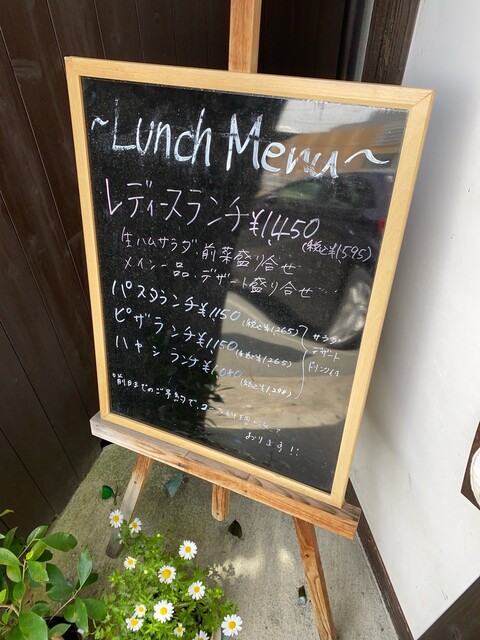 ~Lunch Menu~
レディースランチ¥1,450
(税込¥1,595)
生ハムサラダ・前菜盛り合せ
メイン一品・デザート盛り合せ・・・
パスタランチ¥1,150 (税込¥1,265)
ピザランチ¥1,150 (税込¥1,265)
ハヤシランチ¥1,080
サラダ
デザート
ドリンク付
前日までのご予約で、コース
おります!!